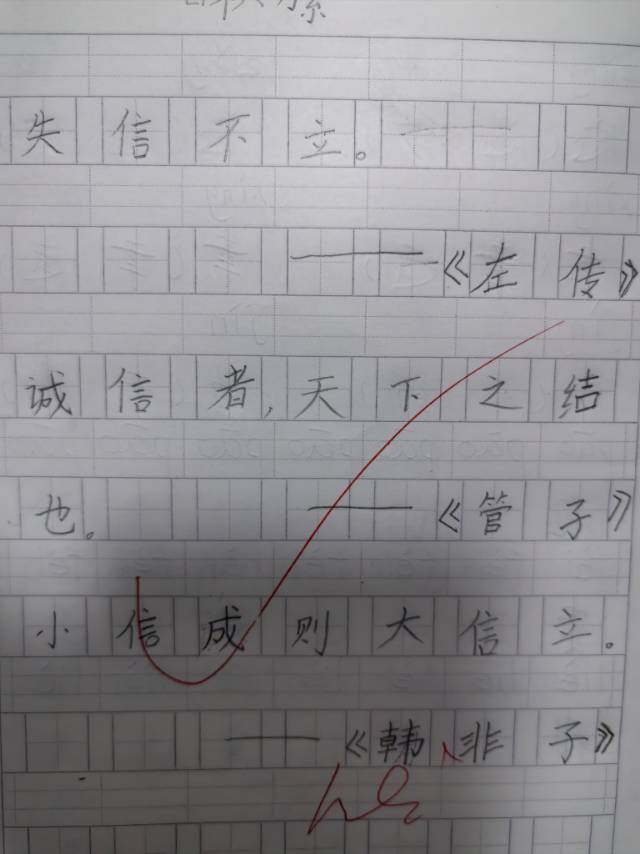 失信不立。
——《左传》
诚信者,天下之结
也。 ——《管子》
小信成则大信立。
——《韩非子》